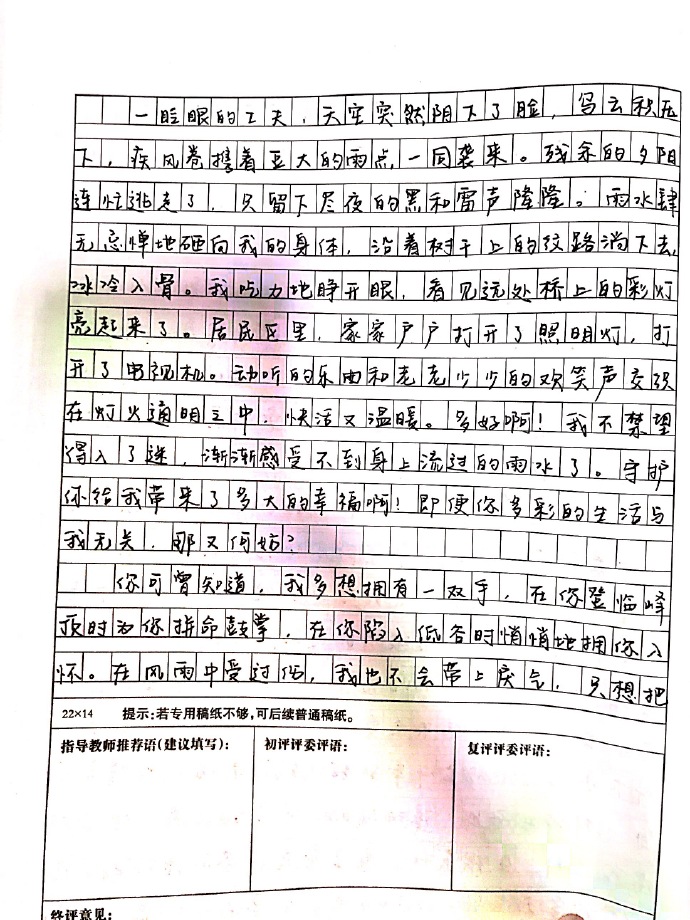 一眨眼的工夫，天空突然阴下了脸，乌云积压
下，疾风卷携着豆大的雨点一同袭来。残余的夕阳
连忙逃走了，只留下尽夜的黑和雷声隆隆。雨水肆
无忌惮地砸向我的身体，沿着树干上的纹路淌下去，
冰冷入骨。我吃力地睁开眼，看见远处桥上的彩灯
亮起来了。居民区里，家家户户打开了照明灯，打
开了电视机。动听的乐曲和老老少少的欢笑声交织
在灯火通明之中，快活又温暖。多好啊！我不禁望
得入了迷，渐渐感受不到身上流过的雨水了。守护
你给我带来了多大的幸福啊！即便你多彩的生活与
我无关，那又何妨？
你可曾知道，我多想拥有一双手，在你登临峰
顶时为你拼命鼓掌，在你陷入低谷时悄悄地拥你入
怀。在风雨中受过伤，我也不会带上戾气，只想把
22×14 提示：若专用稿纸不够，可后续普通稿纸。
指导教师推荐语（建议填写）： 初评评委评语： 复评评委评语：
终评意见：